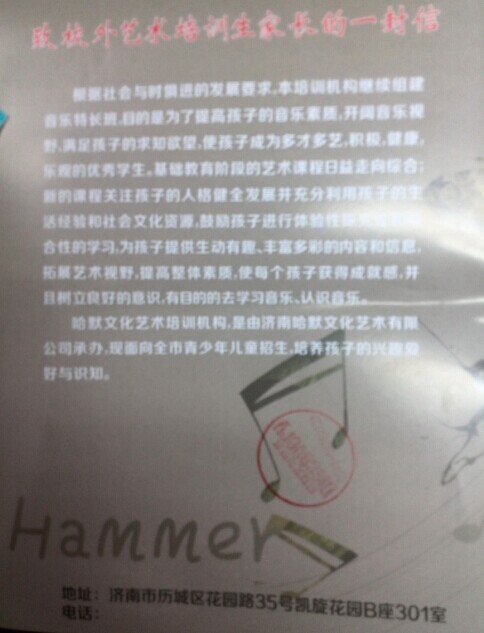 致校外艺术培训生家长的一封信
根据社会与时俱进的发展要求,本培训机构继续组建
音乐特长班,目的是为了提高孩子的音乐素质,开阔音乐视
野,满足孩子的求知欲望,使孩子成为多才多艺,积极,健康,
乐观的优秀学生。基础教育阶段的艺术课程日益走向综合;
新的课程关注孩子的人格健全发展并充分利用孩子的生
活经验和社会文化资源,鼓励孩子进行体验性
合性的学习,为孩子提供生动有趣、丰富多彩的内容和信息,
拓展艺术视野,提高整体素质,使每个孩子获得成就感,并
且树立良好的意识,有目的的去学习音乐、认识音乐。
哈默文化艺术培训机构,是由济南哈默文化艺术有限
公司承办,现面向全市青少年儿童招生,培养孩子的兴趣爱
好与识知。
Hammer
地址：济南市历城区花园路35号凯旋花园B座301室
电话：